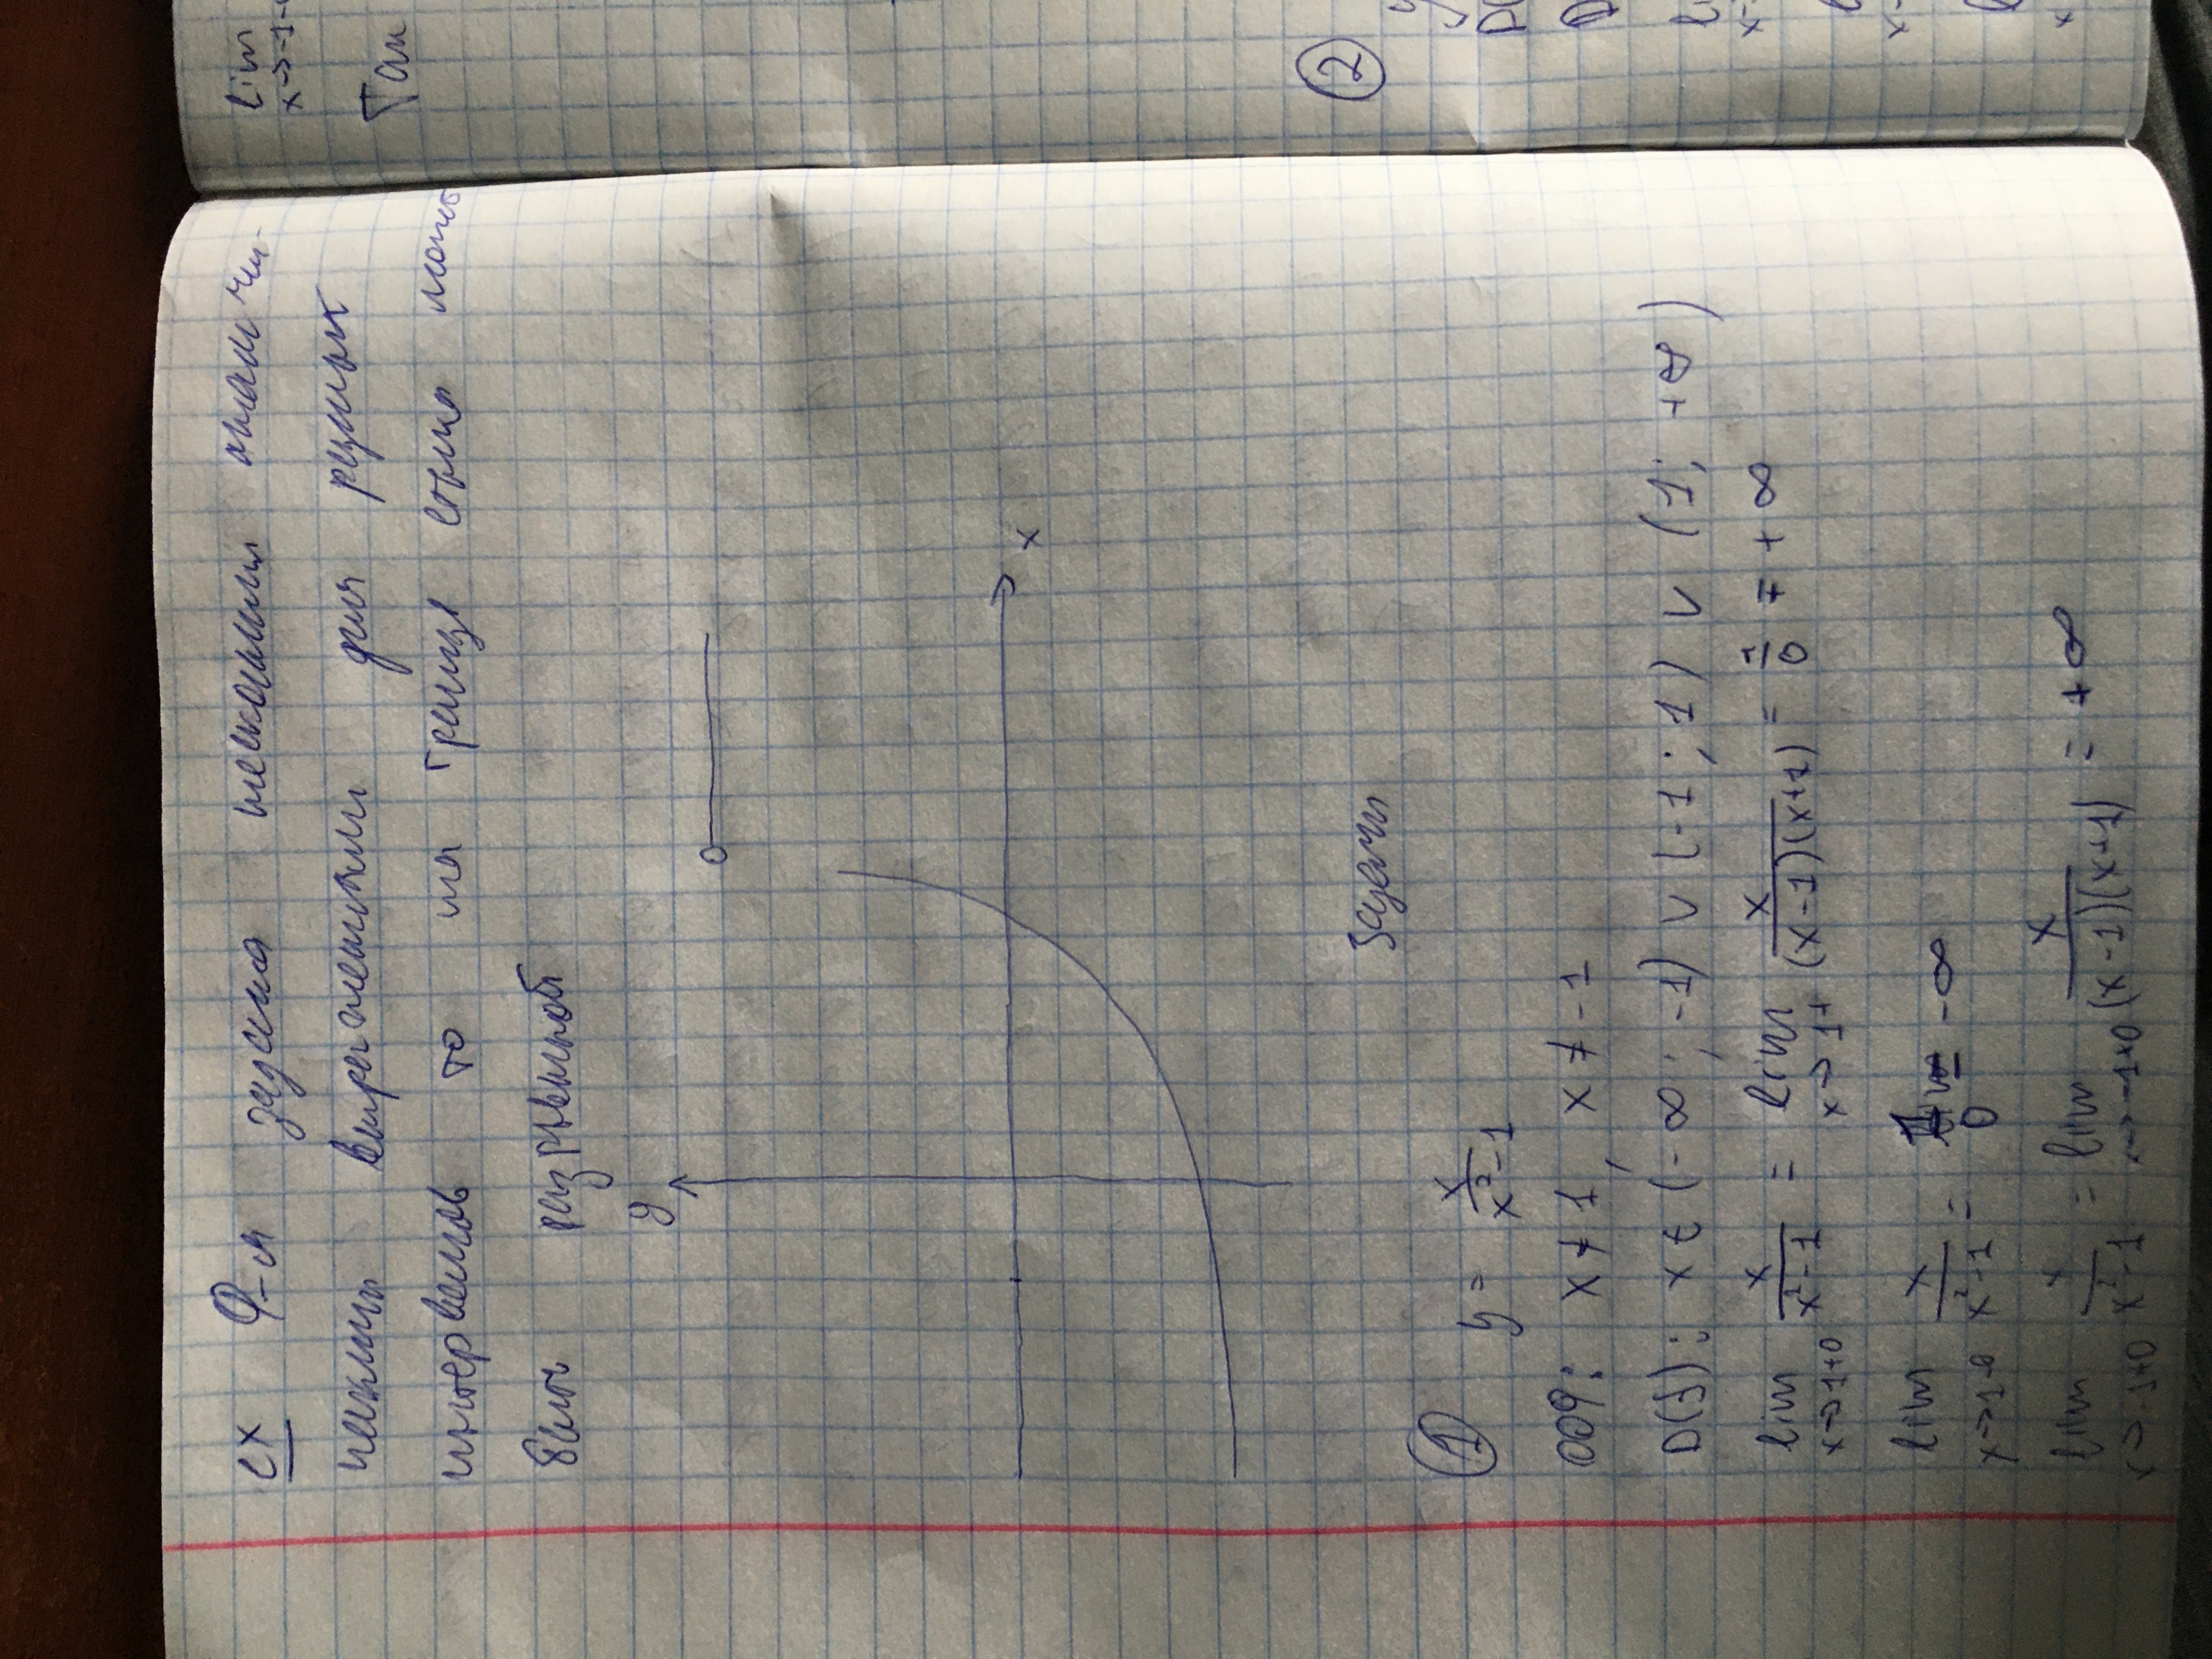 ex Ф-я задана несколькими аналити-
ческими выражениями для разных
интервалов то на границе стыка может
быть разрывной
y
x
Задачи
① y = x/(x²-1)
ООФ: x ≠ 1, x ≠ -1
D(f): x ∈ (-∞; -1) ∪ (-1; 1) ∪ (1; +∞)
lim x→1+0 x/(x²-1) = lim x→1+ x/((x-1)(x+1)) = 1/0 = +∞
lim x→1-0 x/(x²-1) = 1/0 = -∞
lim x→-1+0 x/(x²-1) = lim x→-1+0 x/((x-1)(x+1)) = +∞
lim
x→-1-
Так
②